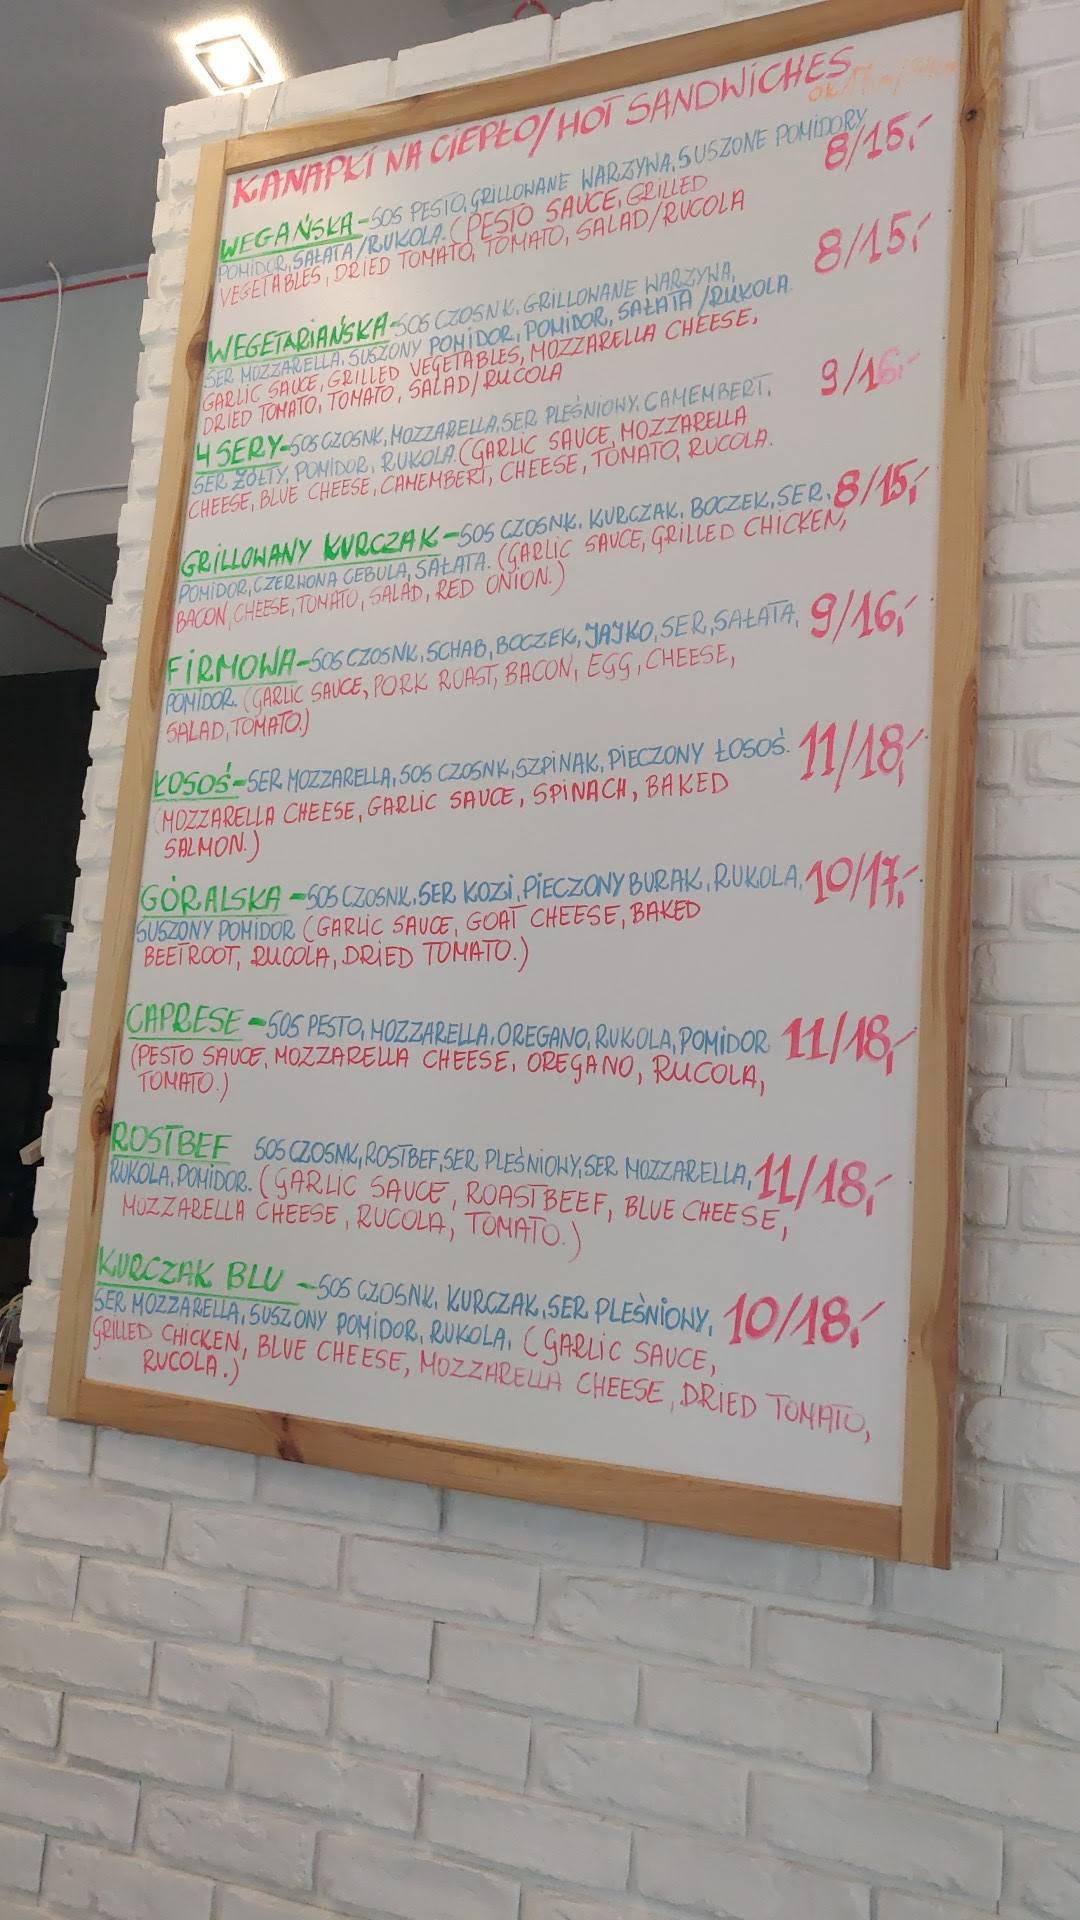 KANAPKI NA CIEPŁO/HOT SANDWICHES
WEGAŃSKA-SOS PESTO, GRILLOWANE WARZYWA, SUSZONE POMIDORY 8/15,-
POMIDOR, SAŁATA/RUKOLA. (PESTO SAUCE, GRILLED
VEGETABLES, DRIED TOMATO, TOMATO, SALAD/RUCOLA
WEGETARIAŃSKA-SOS CZOSNK. GRILLOWANE WARZYWA, 8/15,-
SER MOZZARELLA, SUSZONY POMIDOR, POMIDOR, SAŁATA/RUKOLA.
GARLIC SAUCE, GRILLED VEGETABLES, MOZZARELLA CHEESE,
DRIED TOMATO, TOMATO, SALAD/RUCOLA
4 SERY-SOS CZOSNK, MOZZARELLA, SER PLEŚNIOWY, CAMEMBERT, 9/16,-
SER ŻÓŁTY, POMIDOR, RUKOLA. (GARLIC SAUCE, MOZZARELLA
CHEESE, BLUE CHEESE, CAMEMBERT, CHEESE, TOMATO, RUCOLA.
GRILLOWANY KURCZAK-SOS CZOSNK. KURCZAK. BOCZEK, SER, 8/15,-
POMIDOR, CZERWONA CEBULA, SAŁATA. (GARLIC SAUCE, GRILLED CHICKEN,
BACON, CHEESE, TOMATO, SALAD, RED ONION.)
FIRMOWA-SOS CZOSNK, SCHAB, BOCZEK, JAJKO, SER, SAŁATA, 9/16,-
POMIDOR. (GARLIC SAUCE, PORK ROAST, BACON, EGG, CHEESE,
SALAD, TOMATO.)
ŁOSOŚ-SER MOZZARELLA, SOS CZOSNK, SZPINAK, PIECZONY ŁOSOŚ. 11/18,-
(MOZZARELLA CHEESE, GARLIC SAUCE, SPINACH, BAKED
SALMON.)
GÓRALSKA-SOS CZOSNK, SER KOZI, PIECZONY BURAK, RUKOLA, 10/17,-
SUSZONY POMIDOR (GARLIC SAUCE, GOAT CHEESE, BAKED
BEETROOT, RUCOLA, DRIED TOMATO.)
CAPRESE-SOS PESTO, MOZZARELLA, OREGANO, RUKOLA, POMIDOR 11/18,-
(PESTO SAUCE, MOZZARELLA CHEESE, OREGANO, RUCOLA,
TOMATO.)
ROSTBEF SOS CZOSNK, ROSTBEF, SER PLEŚNIOWY, SER MOZZARELLA, 11/18,-
RUKOLA, POMIDOR. (GARLIC SAUCE, ROASTBEEF, BLUE CHEESE,
MOZZARELLA CHEESE, RUCOLA, TOMATO.)
KURCZAK BLU-SOS CZOSNK, KURCZAK, SER PLEŚNIOWY, 10/18,-
SER MOZZARELLA, SUSZONY POMIDOR, RUKOLA, (GARLIC SAUCE,
GRILLED CHICKEN, BLUE CHEESE, MOZZARELLA CHEESE, DRIED TOMATO,
RUCOLA.)